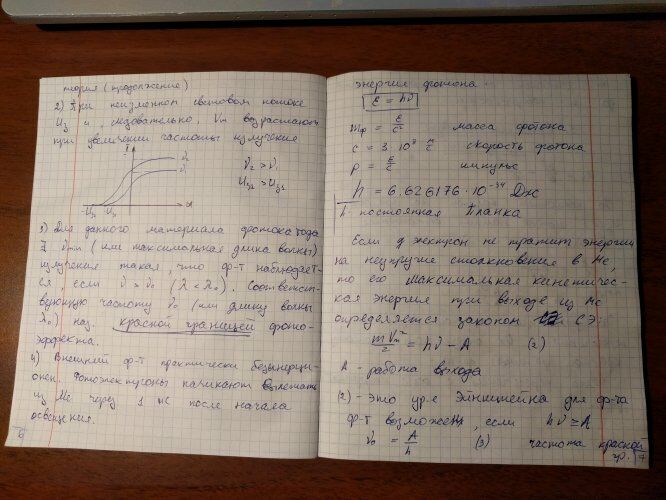 теория (продолжение)
2) При неизменном световом потоке
Uз и, следовательно, Vm возрастают
при увеличении частоты излучения
I
ν2
ν1
ν2 > ν1
Uз2 > Uз1
Uз2 Uз1
U
3) Для данного материала фотокатода
∃ νmin (или максимальная длина волны)
излучения такая, что ф-т наблюдает-
ся, если ν > ν0 (λ < λ0). Соответст-
вующую частоту ν0 (или длину волны
λ0) наз. красной границей фото-
эффекта.
4) Внешний ф-т практически безынерци-
онен. Фотоэлектроны начинают вылетать
из Ме через 1 нс после начала
освещения.
6
энергия фотона.
ε = hν
mф = ε/c² масса фотона
c = 3·10⁸ м/с скорость фотона
p = ε/c импульс
h = 6.626176·10⁻³⁴ Дж
h - постоянная Планка
Если электрон не тратит энергии
на неупругие столкновения в Ме,
то его максимальная кинетичес-
кая энергия при выходе из Ме
определяется законом СЭ:
mVm²/2 = hν - A (2)
A - работа выхода
(2) - это ур-е Эйнштейна для ф-та
ф-т возможен, если hν ≥ A
ν0 = A/h (3) частота красной
гр.
7